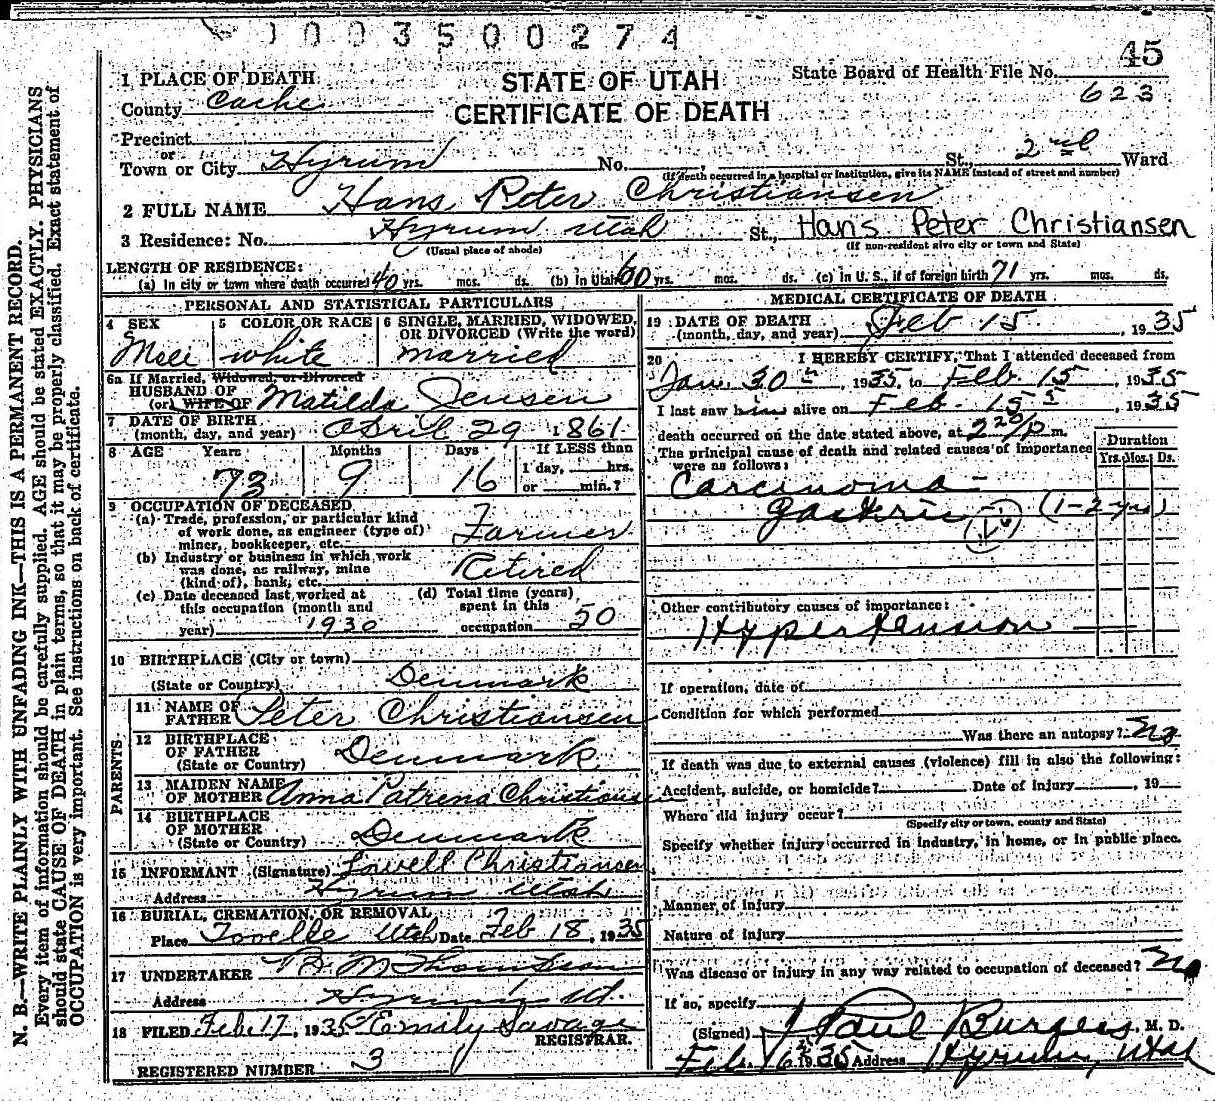 1003500274
45
1 PLACE OF DEATH
STATE OF UTAH
State Board of Health File No.
County Cache
623
CERTIFICATE OF DEATH
Precinct
or
Town or City Hyrum No. St., 2nd Ward
(If death occurred in a hospital or institution, give its NAME instead of street and number)
2 FULL NAME Hans Peter Christiansen
3 Residence: No. Hyrum Utah St., Hans Peter Christiansen
(Usual place of abode) (If non-resident give city or town and State)
LENGTH OF RESIDENCE:
(a) In city or town where death occurred 40 yrs. mos. ds. (b) In Utah 60 yrs. mos. ds. (c) In U. S., if of foreign birth 71 yrs. mos. ds.
PERSONAL AND STATISTICAL PARTICULARS
4 SEX 5 COLOR OR RACE 6 SINGLE, MARRIED, WIDOWED, OR DIVORCED (Write the word)
white married
6a If Married, Widowed, or Divorced
HUSBAND OF
(or) WIFE OF Matilda Jensen
7 DATE OF BIRTH
(month, day, and year) April 29 1861
8 AGE Years Months Days If LESS than
1 day, hrs.
73 9 16 or min.?
9 OCCUPATION OF DECEASED
(a) Trade, profession, or particular kind
of work done, as engineer (type of)
miner, bookkeeper, etc. Farmer
(b) Industry or business in which work
was done, as railway, mine
(kind of), bank, etc. Retired
(c) Date deceased last worked at
this occupation (month and
year) 1930
(d) Total time (years)
spent in this
occupation 50
10 BIRTHPLACE (City or town)
(State or Country) Denmark
PARENTS
11 NAME OF
FATHER Peter Christiansen
12 BIRTHPLACE
OF FATHER
(State or Country) Denmark
13 MAIDEN NAME
OF MOTHER Anna Patrena Christiansen
14 BIRTHPLACE
OF MOTHER
(State or Country) Denmark
15 INFORMANT (Signature) Lowell Christiansen
Address Hyrum Utah
16 BURIAL, CREMATION, OR REMOVAL
Place Tooelle Utah Date Feb 18, 1935
17 UNDERTAKER
Address Hyrum, Ut.
18 FILED Feb 17, 1935 Emily Savage
REGISTRAR.
REGISTERED NUMBER 3
MEDICAL CERTIFICATE OF DEATH
19 DATE OF DEATH
(month, day, and year) Feb 15, 1935
20 I HEREBY CERTIFY, That I attended deceased from
Jan. 30, 1935, to Feb. 15, 1935
I last saw him alive on Feb. 15, 1935
death occurred on the date stated above, at 2 20/p m.
The principal cause of death and related causes of importance
were as follows:
Duration
Yrs. Mos. Ds.
Carcinoma -
gastric (1-2 yrs)
Other contributory causes of importance:
Hypertension
If operation, date of
Condition for which performed
Was there an autopsy? No
If death was due to external causes (violence) fill in also the following:
Accident, suicide, or homicide? Date of injury , 19
Where did injury occur?
(Specify city or town, county and State)
Specify whether injury occurred in industry, in home, or in public place.
Manner of injury
Nature of injury
Was disease or injury in any way related to occupation of deceased? No
If so, specify
(Signed) J Paul Burgess, M. D.
Feb. 16 1935 Address Hyrum, Utah
N. B.—WRITE PLAINLY WITH UNFADING INK—THIS IS A PERMANENT RECORD.
Every item of information should be carefully supplied. AGE should be stated EXACTLY. PHYSICIANS
should state CAUSE OF DEATH in plain terms, so that it may be properly classified. Exact statement of
OCCUPATION is very important. See instructions on back of certificate.